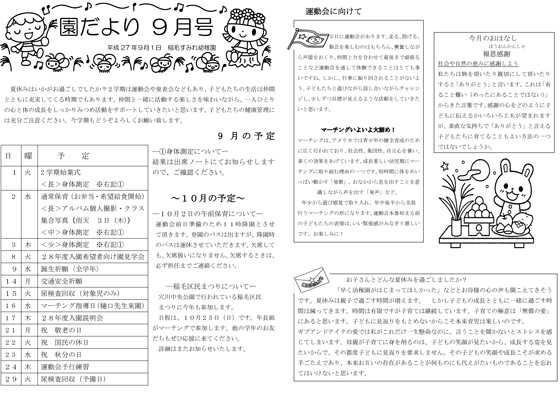 園だより 9月号
平成27年9月1日 稲毛すみれ幼稚園
夏休みはいかがお過ごしでしたか?2学期は運動会や発表会などもあり、子どもたちの生活は仲間
とともに充実してくる時期でもあります。仲間と一緒に活動する楽しさを味わいながら、一人ひとり
の心と体の成長をしっかりみつめ活動をサポートしていきたいと思います。子どもたちの健康管理に
は充分ご注意ください。今学期もどうぞよろしくお願い致します。
9月の予定
日 曜 予定
1 火 2学期始業式
<長>身体測定 ※右記①
2 水 通常保育(お弁当・希望給食)
<長>アルバム個人撮影・クラス
集合写真(雨天 3日(木))
<中>身体測定 ※右記①
3 木 <少>身体測定 ※右記①
8 火 28年度入園希望者向け園見学会
9 水 誕生祈願(全学年)
14 月 交通安全祈願
15 火 尿検査回収(対象児のみ)
16 水 マーチング指導日(樋口先生来園)
17 木 28年度入園説明会
21 月 祝 敬老の日
22 火 祝 国民の休日
23 水 祝 秋分の日
24 木 運動会予行練習
29 火 尿検査回収(予備日)
―①身体測定について―
結果は出席ノートにてお知らせします
ので、ご確認ください。
~10月の予定~
―10月2日の午前保育について―
運動会前日準備のため11時降園とさせ
て頂きます。登園のバスは出ますが、降園時
のバスは運休させていただきます。欠席して
も、欠席扱いになりません。欠席するときは、
必ず担任までご連絡ください。
―稲毛区民まつりについて―
穴川中央公園で行われている稲毛区民
まつりに今年も参加します。
日程は、10月25日(日)です。年長組
がマーチングで参加します。他の学年のお友
だちもぜひ応援に来てください。
詳細はまたお知らせいたします。
運動会に向けて
3日に運動会があります。走る、投げる、
動会を楽しむのはもちろん、興奮しなが
ら声援をおくり、仲間と力を合わせて最後まで頑張る
ことなど運動会を通して体験できることはとても多
いですね。しかし、行事に振り回されることがないよ
う、子どもたちと遊びながら話し合いながらチャレン
ジし、少しずつ目標が見えるような活動をしていきた
いと思います。
マーチングいよいよ大詰め!
マーチングは、アメリカでは青少年の健全育成のため
に広く行われており、社会性、集団性、自立心を養い、
多くの効果をあげています。成長著しい幼児期にマー
チングに取り組む理由の一つです。短時間に体をめい
っぱい動かす「発散」、おなかから息を出すことを意
識しながら声を出す「発声」など、
年少から遊び感覚で取り入れ、年中後半から全員
行うマーチングの形になります。運動会本番始まる前
の子どもたちの表情は、いい緊張感がみなぎり凛々し
いです。お楽しみに!
今月のおはなし
ほうおんかんしゃ
報恩感謝
社会や自然の恵みに感謝しよう
私たちは物を頂いたり親切にして頂いたり
すると「ありがとう」と言います。これは「有
ること難い(めったにあることではない)」
からきた言葉です。感謝の心をどのように子
どもに伝えるかいろいろ工夫が望まれます
が、素直な気持ちで「ありがとう」と言える
子どもたちに育てることもよい方法の一つ
ではないでしょうか。
お子さんとどんな夏休みを過ごしましたか?
「早く幼稚園がはじまってほしかった」などとお母様の心の声も聞こえてきそう
です。夏休みは親子で過ごす時間が増えます。しかし子どもの成長とともに一緒に過ごす時
間は減ってきます。時間は有限ですが子育ては継続しています。子育ての極意は「無償の愛」
にあると思います。子どもに見返りをもとめないからこそ本来育児は楽しいのです。
ギブアンドテイクの愛では私がこれだけ一生懸命なのに、言うことを聞かないとストレスを感
じてしまいます。母親が子育てに身を削るのは、子どもの笑顔が見たいから、成長する姿を見
たいからで、その都度子どもに見返りを要求しません。その子どもの笑顔や成長こそが求める
手ごたえであり、本来お互いの存在があることが何ものにも代えがたいものであることを忘れ
てはいけないと思います。